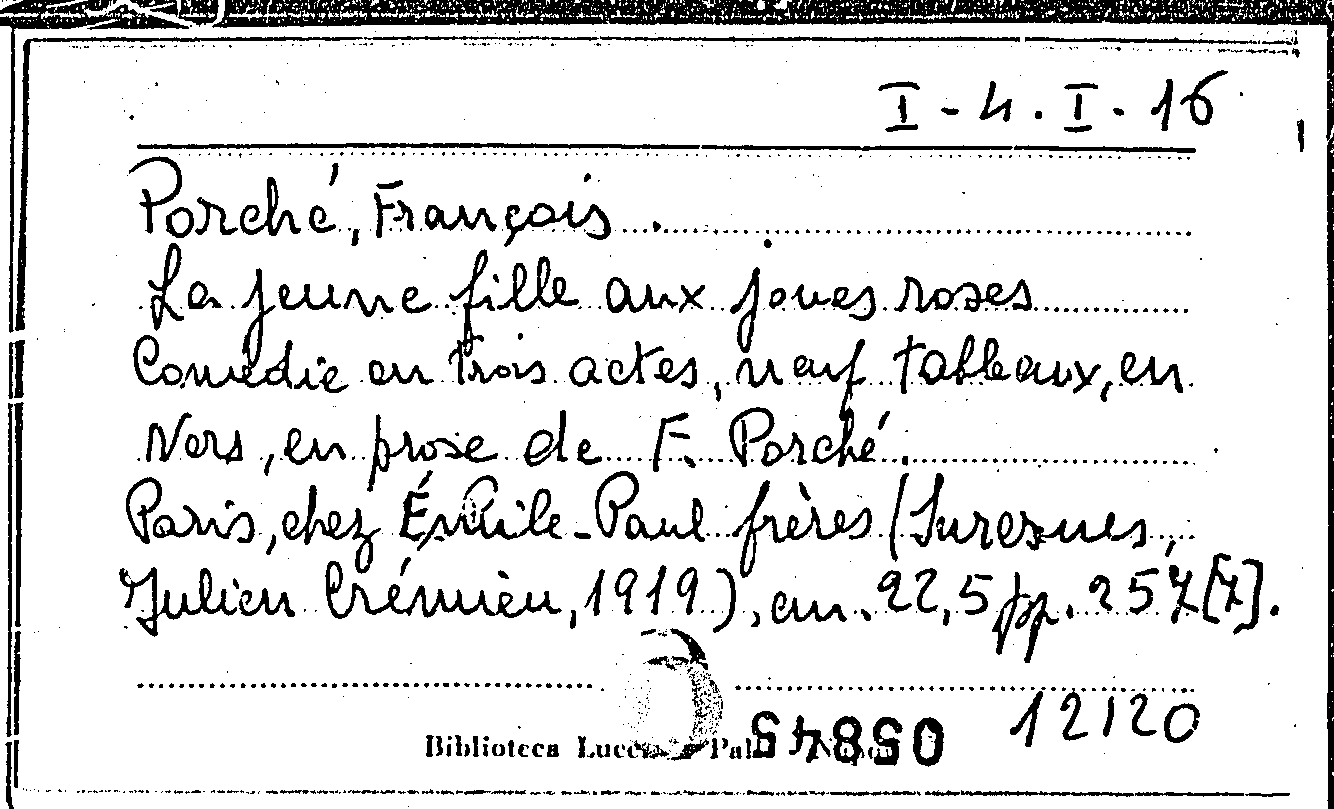 I - 4. I - 16
Porché, François
La jeune fille aux joues roses
Comédie en trois actes, neuf tableaux, en
Vers, en prose de F. Porché.
Paris, chez Émile-Paul frères (Suresnes,
Julien Crémieu, 1919), cm. 22,5 pp. 257[7].
12120
Biblioteca
058435